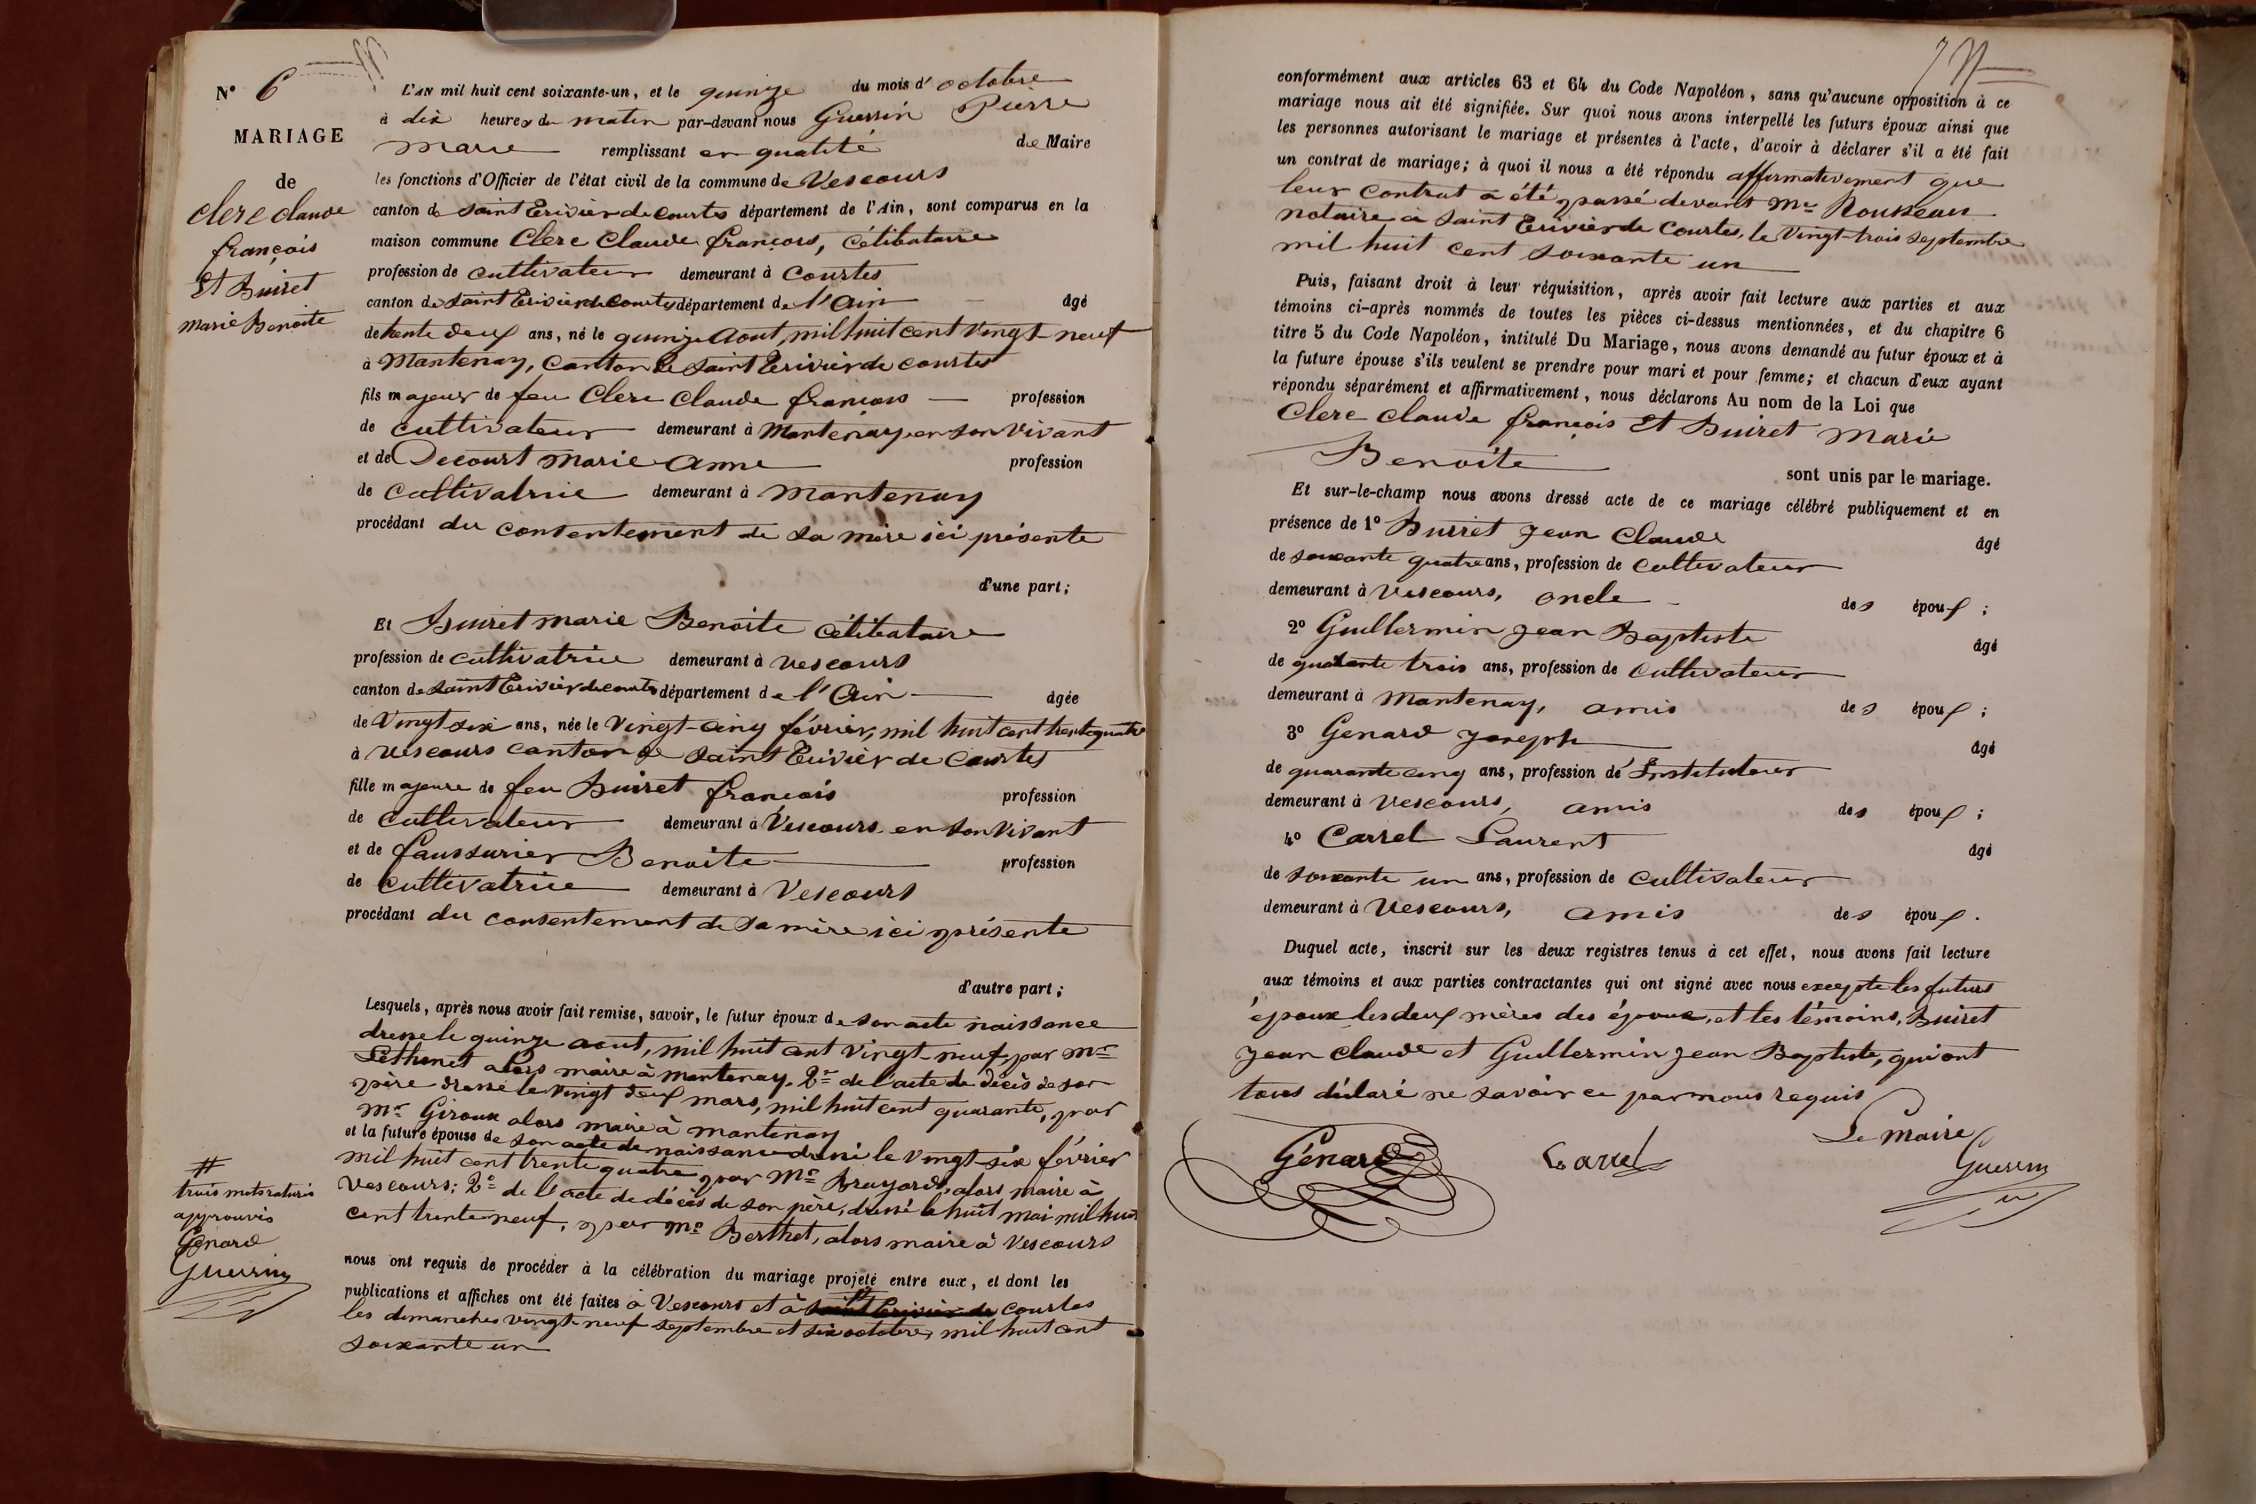 N° 6
MARIAGE
de
Clerc Claude
françois
Et Buiret
Marie Benoite
L'AN mil huit cent soixante-un, et le quinze du mois d'octobre
à dix heures du matin par-devant nous Guerrin Pierre
Marie remplissant en qualité de Maire
les fonctions d'Officier de l'état civil de la commune de Vescours
canton de Saint Trivier de Courtes département de l'Ain, sont comparus en la
maison commune Clerc Claude françois, Célibataire
profession de cultivateur demeurant à Courtes
canton de Saint Trivier de Courtes département de l'Ain âgé
de trente deux ans, né le quinze Aout, mil huit cent vingt-neuf
à Mantenay, Canton de Saint Trivier de Courtes
fils majeur de feu Clerc Claude françois profession
de cultivateur demeurant à Mantenay en son vivant
et de Decourt Marie Anne profession
de cultivatrice demeurant à Mantenay
procédant du consentement de sa mère ici présente
d'une part;
Et Buiret Marie Benoite célibataire
profession de cultivatrice demeurant à Vescours
canton de Saint Trivier de Courtes département de l'Ain âgée
de Vingt six ans, née le vingt-cinq février, mil huit cent trente quatre
à Vescours canton de Saint Trivier de Courtes
fille majeure de feu Buiret françois profession
de cultivateur demeurant à Vescours en son vivant
et de faussurier Benoite profession
de cultivatrice demeurant à Vescours
procédant du consentement de sa mère ici présente
d'autre part;
Lesquels, après nous avoir fait remise, savoir, le futur époux de son acte naissance
dressé le quinze aout, mil huit cent vingt-neuf, par Mr
alors maire à Mantenay. 2° de l'acte de décès de son
père dressé le vingt deux mars, mil huit cent quarante, par
Mr Giroux alors maire à Mantenay
et la future épouse de son acte de naissance dressé le vingt-six février
mil huit cent trente quatre par Mr Brayard, alors maire à
Vescours; 2° de l'acte de décès de son père, dressé le huit mai mil huit
cent trente neuf, par Mr Berthet, alors maire à Vescours
nous ont requis de procéder à la célébration du mariage projeté entre eux, et dont les
publications et affiches ont été faites à Vescours et à Saint Trivier de Courtes
les dimanches vingt-neuf septembre et six octobre, mil huit cent
soixante un
#
trois mots raturés
approuvés
Génard
Guerrin
conformément aux articles 63 et 64 du Code Napoléon, sans qu'aucune opposition à ce
mariage nous ait été signifiée. Sur quoi nous avons interpellé les futurs époux ainsi que
les personnes autorisant le mariage et présentes à l'acte, d'avoir à déclarer s'il a été fait
un contrat de mariage; à quoi il nous a été répondu affirmativement que
leur contrat a été passé devant Me Rousseau
notaire à Saint Trivier de Courtes, le vingt-trois septembre
mil huit cent soixante un
Puis, faisant droit à leur réquisition, après avoir fait lecture aux parties et aux
témoins ci-après nommés de toutes les pièces ci-dessus mentionnées, et du chapitre 6
titre 5 du Code Napoléon, intitulé Du Mariage, nous avons demandé au futur époux et à
la future épouse s'ils veulent se prendre pour mari et pour femme; et chacun d'eux ayant
répondu séparément et affirmativement, nous déclarons Au nom de la Loi que
Clerc Claude françois Et Buiret Marie
Benoite sont unis par le mariage.
Et sur-le-champ nous avons dressé acte de ce mariage célébré publiquement et en
présence de 1° Buiret Jean Claude âgé
de soixante quatre ans, profession de cultivateur
demeurant à Vescours, oncle des époux;
2° Guillermin Jean Baptiste âgé
de quarante trois ans, profession de cultivateur
demeurant à Mantenay, amis des époux;
3° Genard Joseph âgé
de quarante cinq ans, profession de Instituteur
demeurant à Vescours, amis des époux;
4° Carrel Laurent âgé
de soixante un ans, profession de cultivateur
demeurant à Vescours, amis des époux.
Duquel acte, inscrit sur les deux registres tenus à cet effet, nous avons fait lecture
aux témoins et aux parties contractantes qui ont signé avec nous excepte les futurs
époux, les deux mères des époux, et les témoins, Buiret
Jean Claude et Guillermin Jean Baptiste, qui ont
tous déclaré ne savoir ce par nous requis
Le Maire
Génard Carrel Guerrin